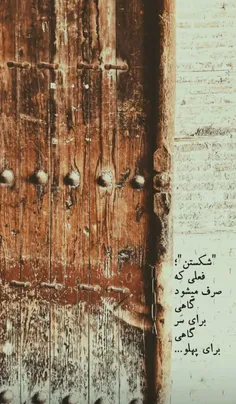 "شکستن"؛
فعلی که
صرف میشود
گاهی
برای سَر
گاهی
برای پهلو...